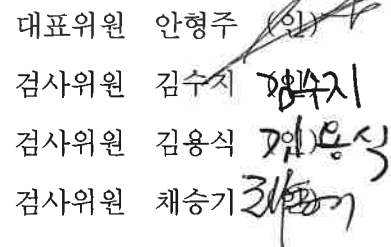 대표위원 안형주 (인)
검사위원 김수지 김수지
검사위원 김용식 (인) 김용식
검사위원 채승기